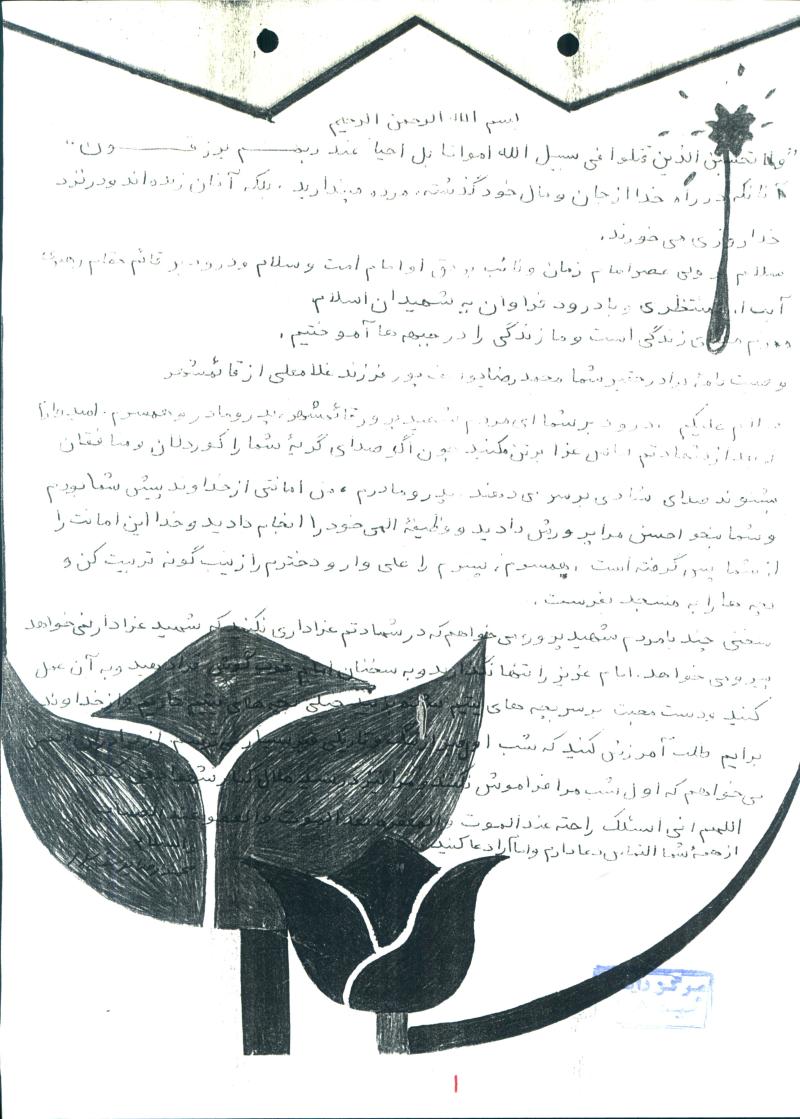 بسم الله الرحمن الرحیم
"ولا تحسبن الذین قتلوا فی سبیل الله امواتا بل احیا عند ربهم یرزقون"
آنانکه در راه خدا از جان و مال خود گذشته، مرده مپندارید، بلکه آنان زنده‌اند و در نزد
خدا روزی می‌خورند.
سلام بر ولی عصر امام زمان و نائب بر حق او امام امت و سلام و درود بر قائم مقام رهبری
آیت ا.. منتظری و با درود فراوان به شهیدان اسلام
زندگی است و ما زندگی را در جبهه‌ها آموختیم.
وصیت نامه برادر حقیر شما محمدرضا پور فرزند غلامعلی از قائمشهر
سلام علیکم درود بر شما ای مردم شهید پرور قائمشهر، پدر و مادر و همسرم. امیدوارم
که بعد از شهادتم لباس عزا بر تن مکنید چون اگر صدای گریهٔ شما را کوردلان و منافقان
بشنوند صدای شادی بر سر می‌دهند. پدر و مادرم، من امانتی از خداوند پیش شما بودم
و شما بنحو احسن مرا پرورش دادید و وظیفهٔ الهی خود را انجام دادید و خدا این امانت را
از شما پس گرفته است. همسرم، پسرم را علی وار و دخترم را زینب گونه تربیت کن و
بچه‌ها را به مسجد بفرست.
سخنی چند با مردم شهید پرور می‌خواهم که در شهادتم عزاداری نکنید که شهید عزادار نمی‌خواهد
پیرو می‌خواهد. امام عزیز را تنها نگذارید و به سخنان امام خوب گوش فرا دهید و به آن عمل
کنید و دست محبت بر سر بچه‌های یتیم خیلی بچه‌های یتیم داریم و از خداوند
برایم طلب آمرزش کنید که شب اول قبر و تاریکی قبر بسیار
می‌خواهم که اول شب مرا فراموش نکنند
اللهم انی اسئلک راحة عند الموت والمغفرة بعد الموت والعفو عند الحساب
از همهٔ شما التماس دعا دارم و امام را دعا کنید
والسلام